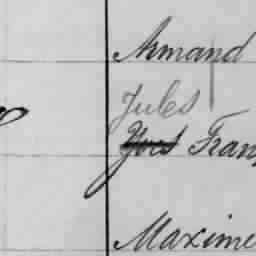 Armand
Jules
Yves Fran
Maxime